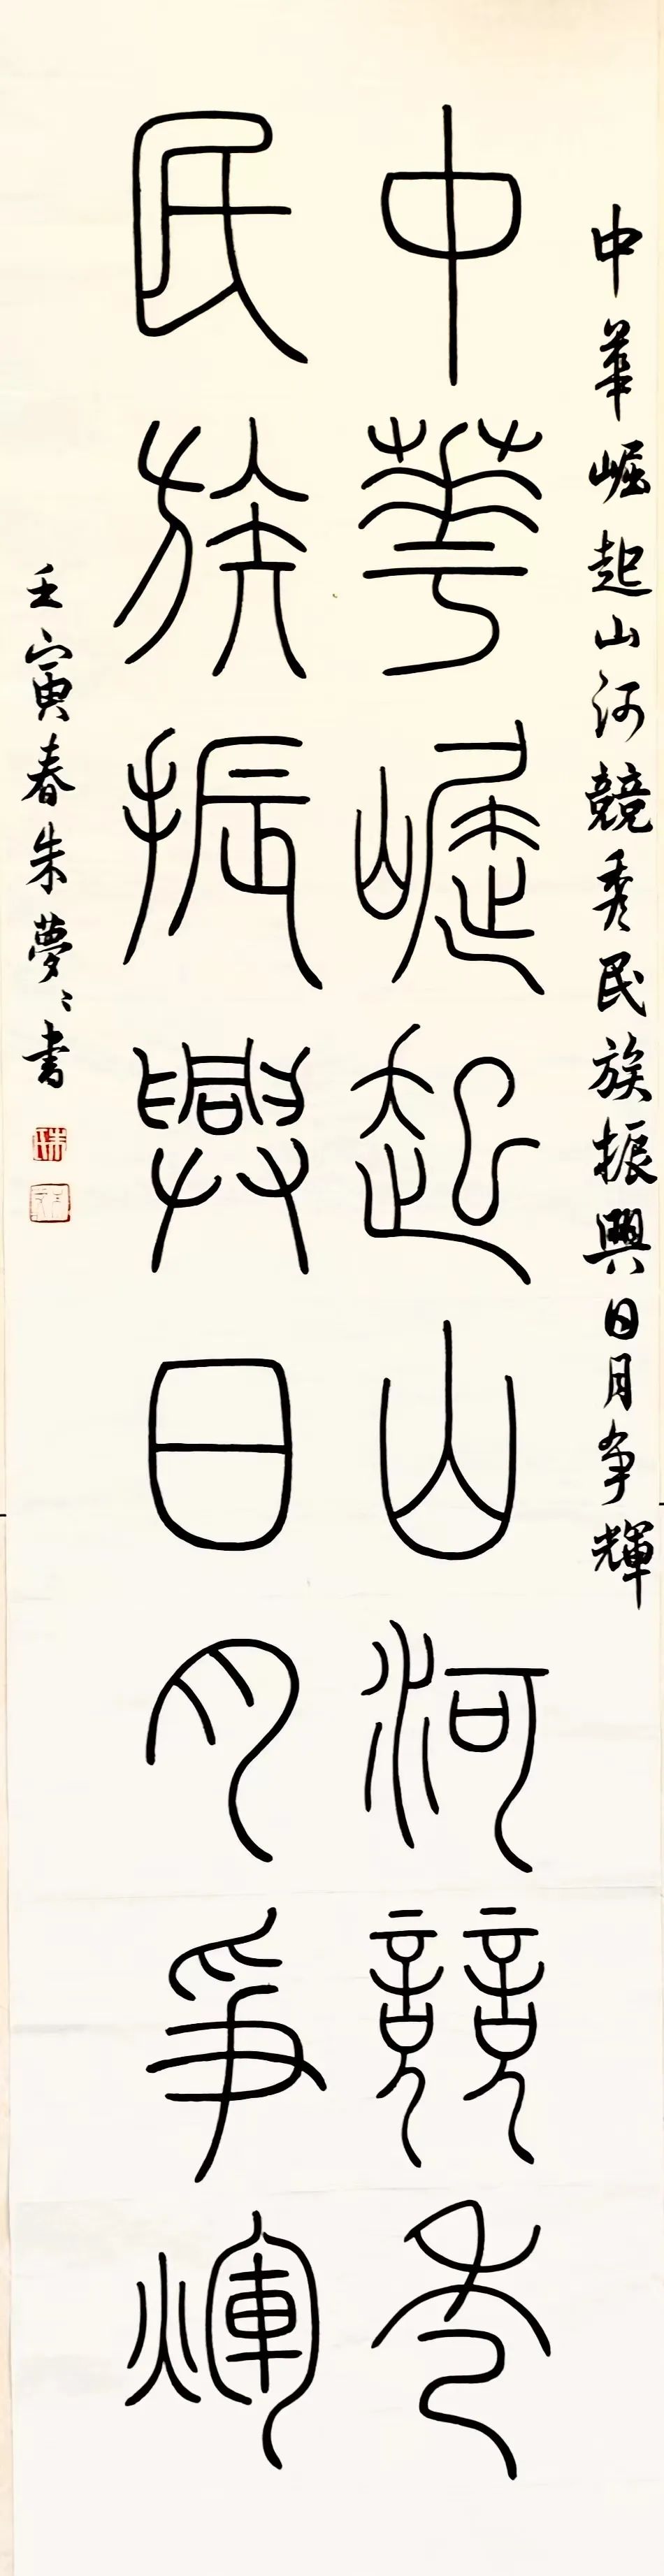 中華崛起山河競秀民族振興日月争輝
中華崛起山河競秀
民族振興日月爭輝
壬寅春朱夢〻書